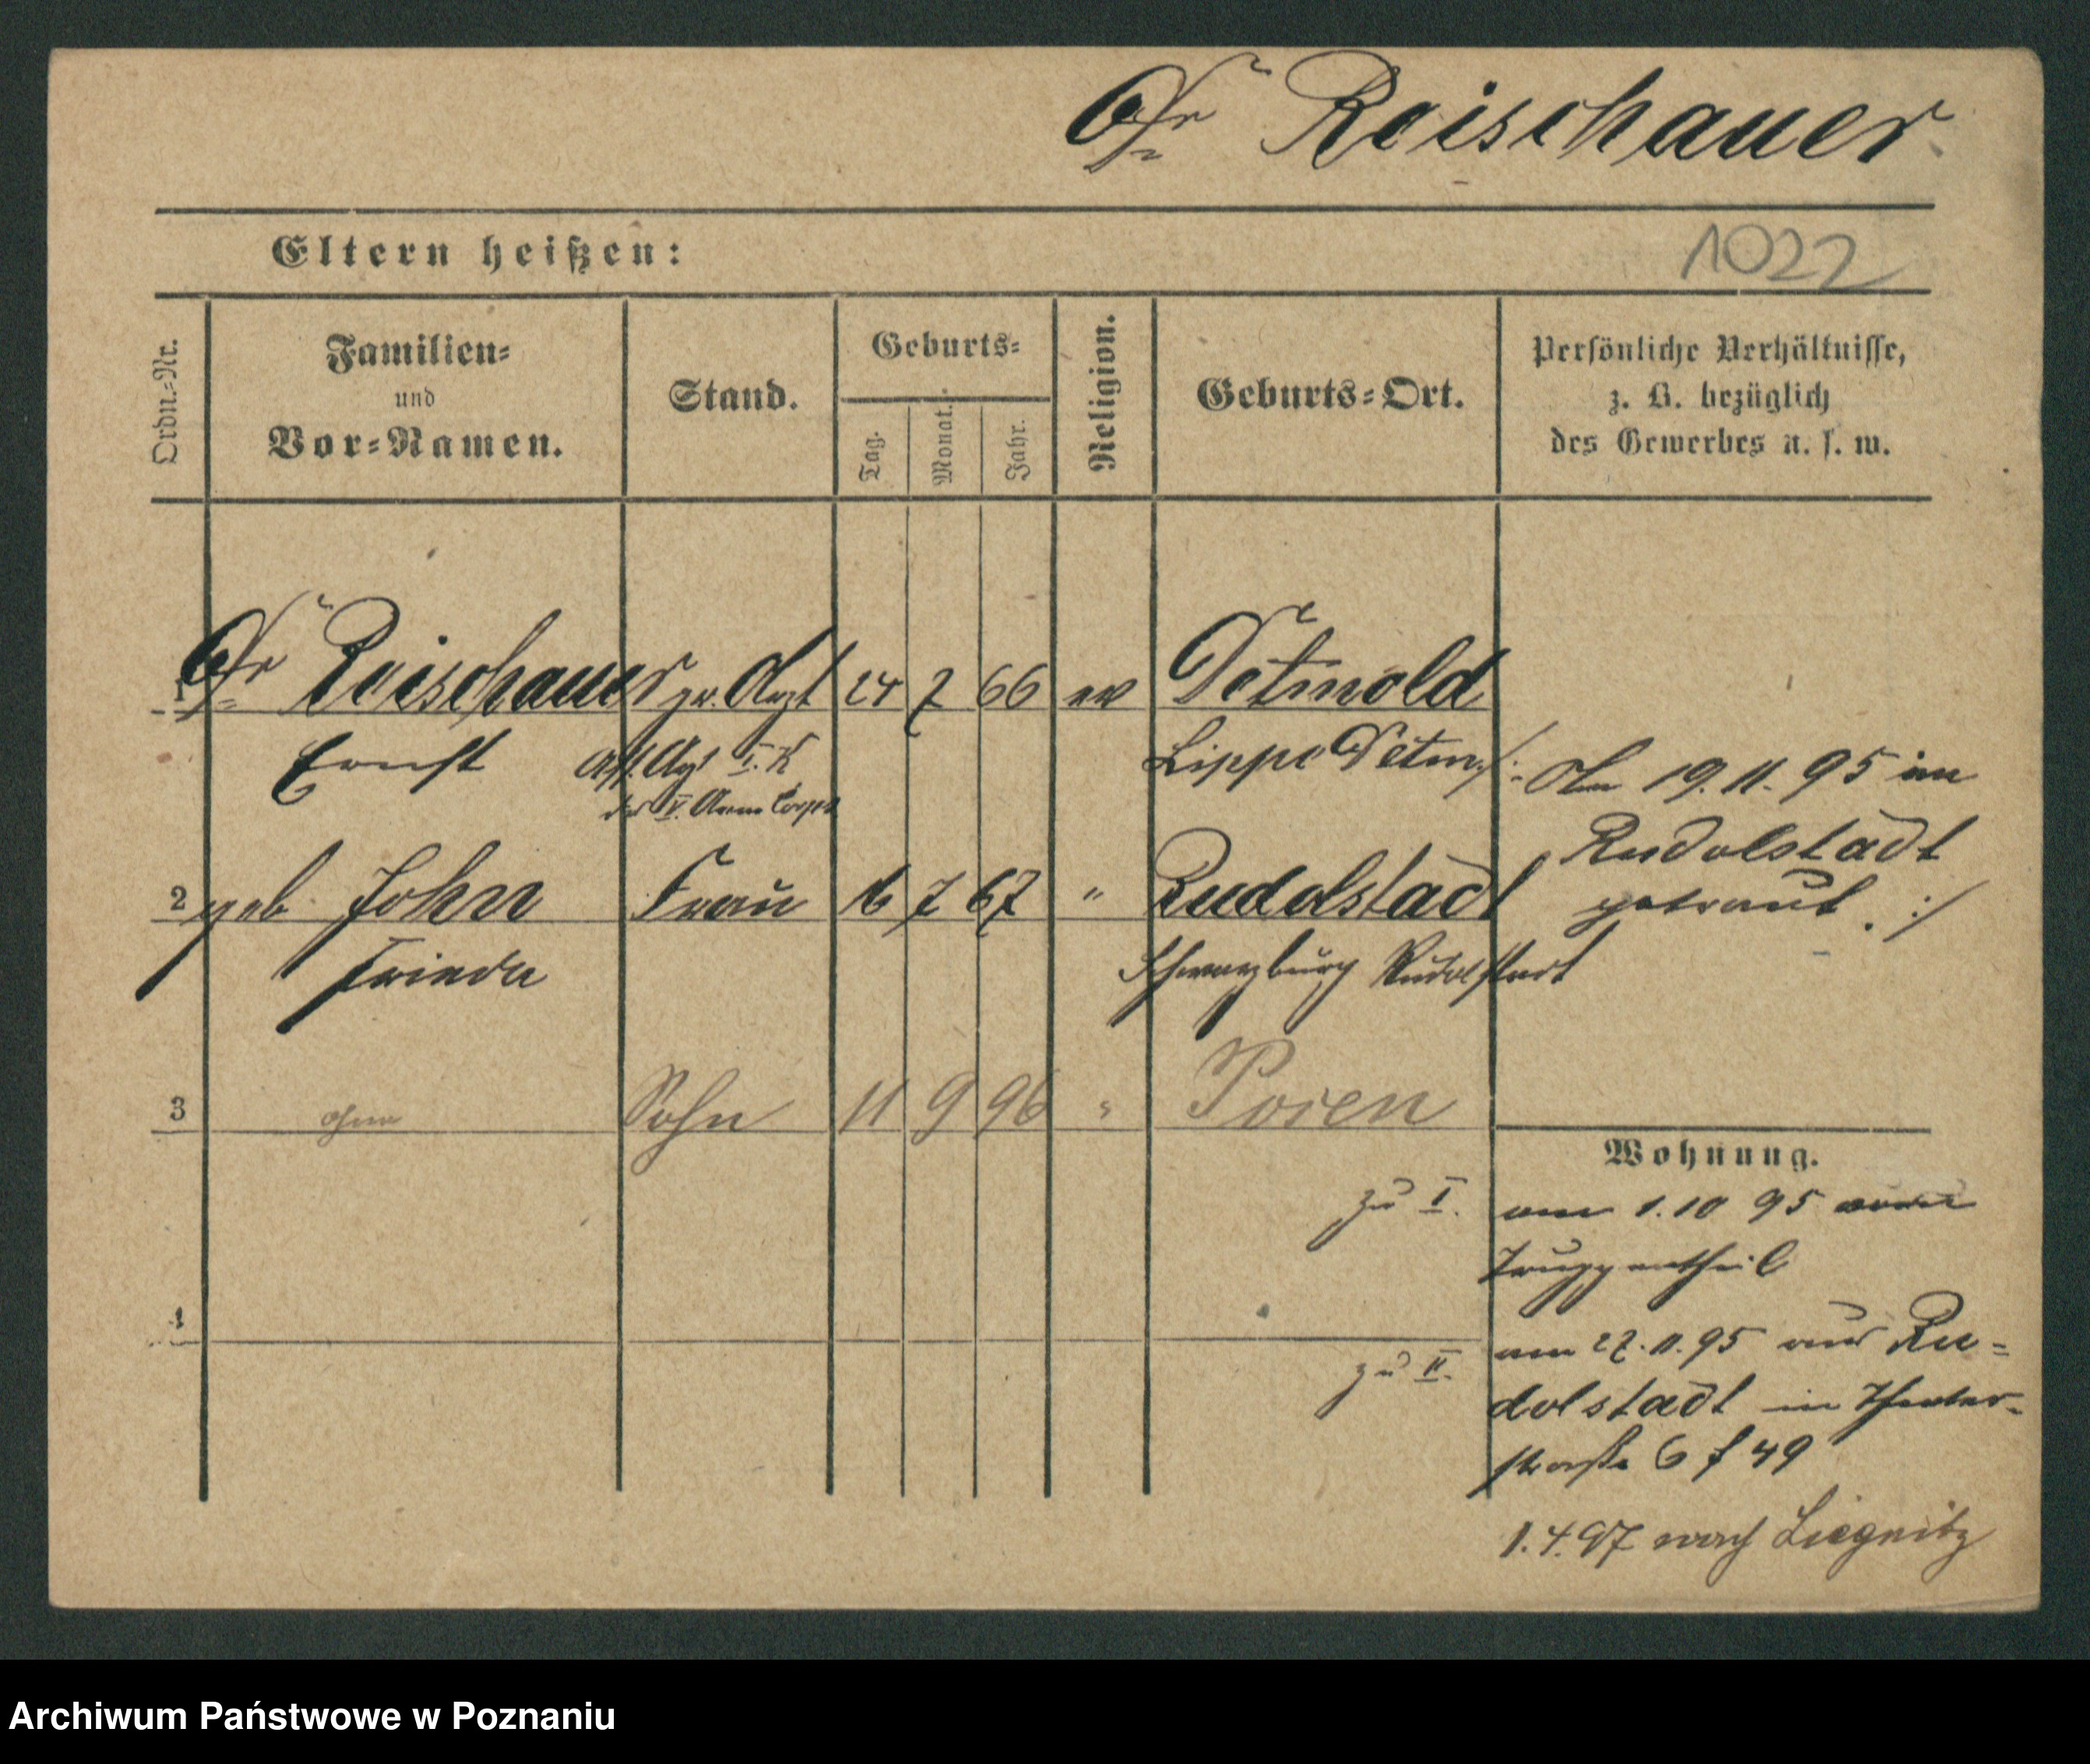 Dr Reischauer
Eltern heißen:
1022
Ordn.=Nr.
Familien=
und
Vor=Namen.
Stand.
Geburts=
Tag.
Monat.
Jahr.
Religion.
Geburts=Ort.
Persönliche Verhältnisse,
z. B. bezüglich
des Gewerbes u. s. w.
1 Dr Reischauer pr. Arzt 24 7 66 ev Detmold
Ernst Ass. Arzt I. K Lippe Detm.
des V. Armee Corps
/: Am 19. 11. 95 in
Rudolstadt
getraut. :/
2 geb John Frau 16 7 67 " Rudolstadt
Frieda Schwarzburg Rudolstadt
3 ohne Sohn 11 9 96 " Posen
Wohnung.
zu I. am 1. 10 95 vom
Truppentheil
4
zu II. am 27. 11. 95 aus Ru=
dolstadt in Theater=
straße 6 f 49
1. 4. 97 nach Liegnitz
Archiwum Państwowe w Poznaniu